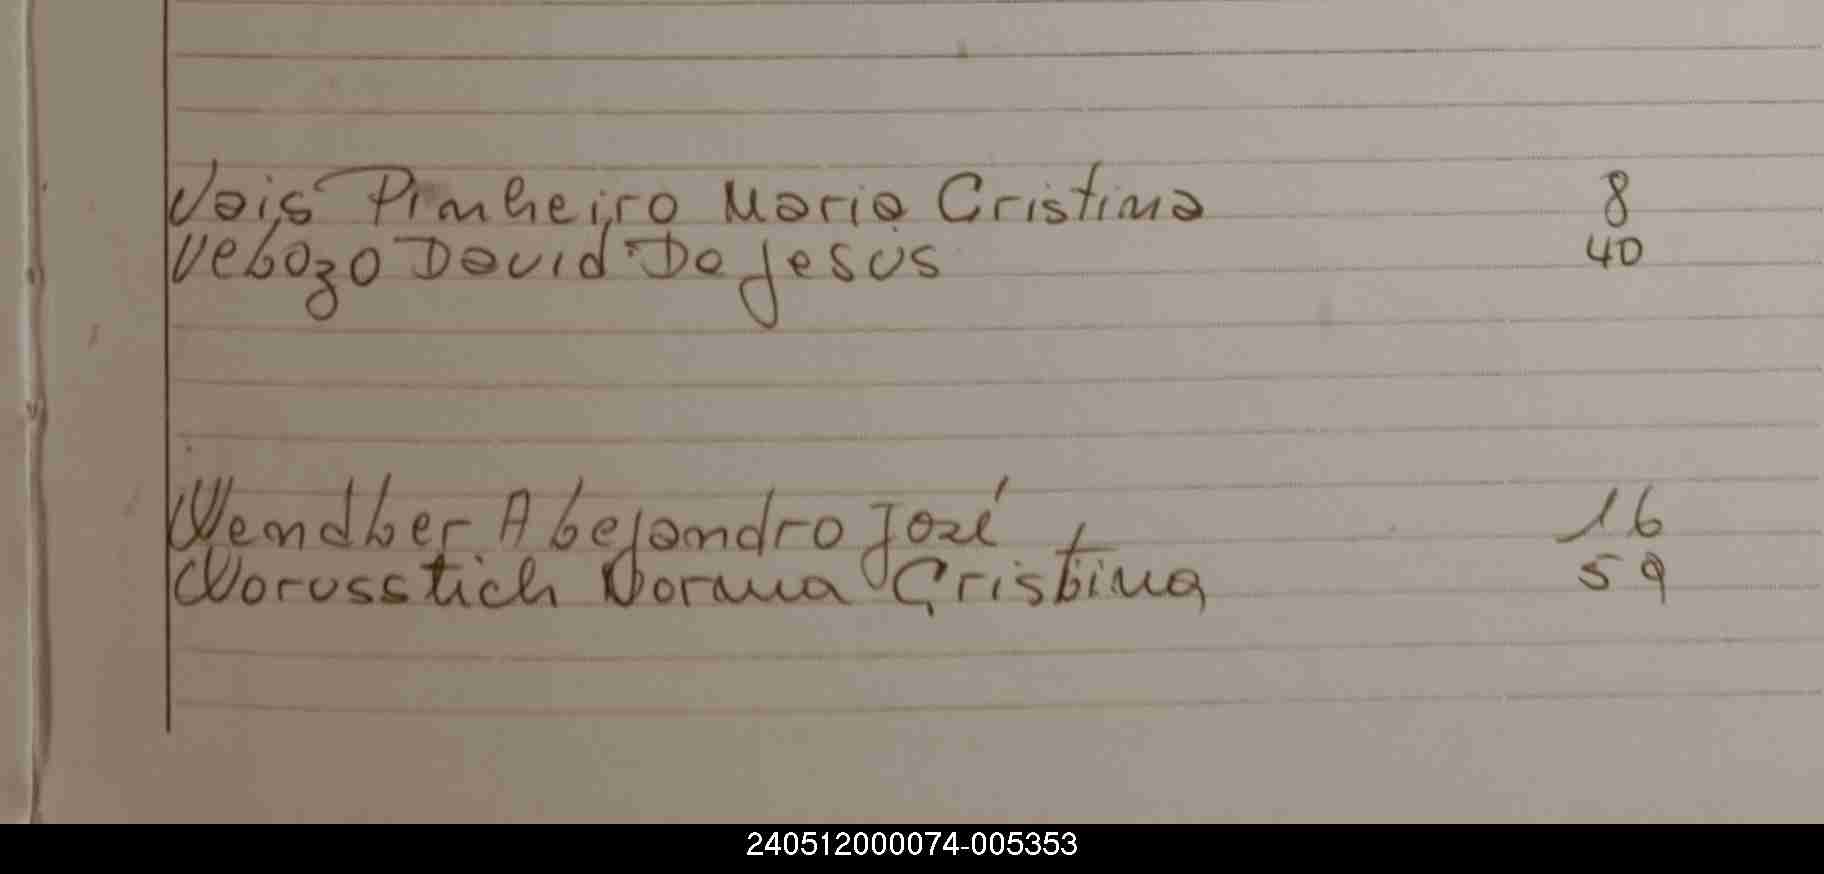 Vais Pinheiro Maria Cristina 8
Velozo David De Jesus 40
Wendler Alejandro José 16
Worusstich Norma Cristina 59
240512000074-005353